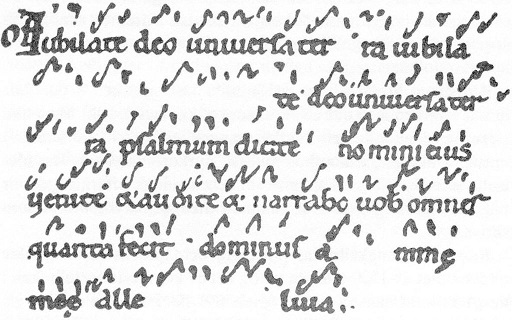 Of Iubilate deo uniuersa ter ra iubila
te deo uniuersa ter
ra psalmum dicite nomini eius
uenite & audite & narrabo uob omnes
quanta fecit dominus a mme
mee alle luia.